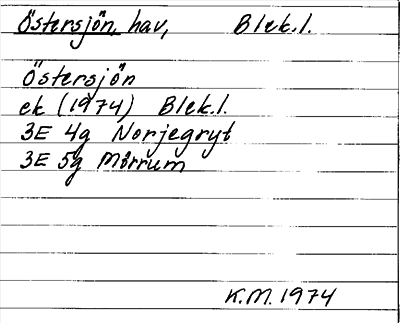 Östersjön, hav, Blek.l.
Östersjön
ek (1974) Blek.l.
3E 4g Norjegryt
3E 5g Mörrum
K.M. 1974